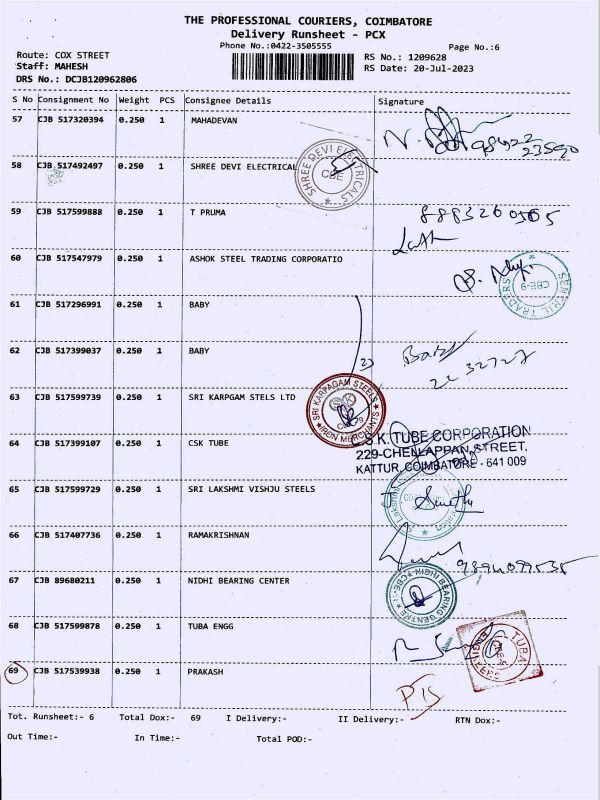 THE PROFESSIONAL COURIERS, COIMBATORE
Delivery Runsheet - PCX
Phone No.:0422-3505555
Page No.:6
Route: COX STREET
RS No.: 1209628
Staff: MAHESH
RS Date: 20-Jul-2023
DRS No.: DCJB120962806
S No Consignment No Weight PCS Consignee Details Signature
57 CJB 517320394 0.250 1 MAHADEVAN
58 CJB 517492497 0.250 1 SHREE DEVI ELECTRICAL
SHREE DEVI ELECTRICALS
CBE
59 CJB 517599888 0.250 1 T PRUMA
8883260505
60 CJB 517547979 0.250 1 ASHOK STEEL TRADING CORPORATIO
SENTHIL TRADERS
CBE-9
61 CJB 517296991 0.250 1 BABY
62 CJB 517399037 0.250 1 BABY
Baby
2232727
23
63 CJB 517599739 0.250 1 SRI KARPGAM STELS LTD
SRI KARPAGAM STEELS
IRON MERCHANTS
64 CJB 517399107 0.250 1 CSK TUBE
C.S.K. TUBE CORPORATION
229-CHELLAPPAN STREET,
KATTUR, COIMBATORE - 641 009
65 CJB 517599729 0.250 1 SRI LAKSHMI VISHJU STEELS
66 CJB 517407736 0.250 1 RAMAKRISHNAN
67 CJB 89680211 0.250 1 NIDHI BEARING CENTER
NIDHI BEARING CENTRE
CBE
68 CJB 517599878 0.250 1 TUBA ENGG
TUBA
ENGINEERS
69 CJB 517539938 0.250 1 PRAKASH
Tot. Runsheet:- 6 Total Dox:- 69 I Delivery:- II Delivery:- RTN Dox:-
Out Time:- In Time:- Total POD:-